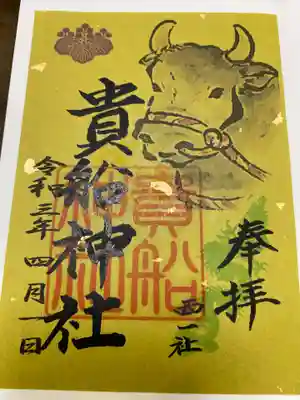 奉拝
西一社
貴船神社
令和三年四月一日
貴船
神社